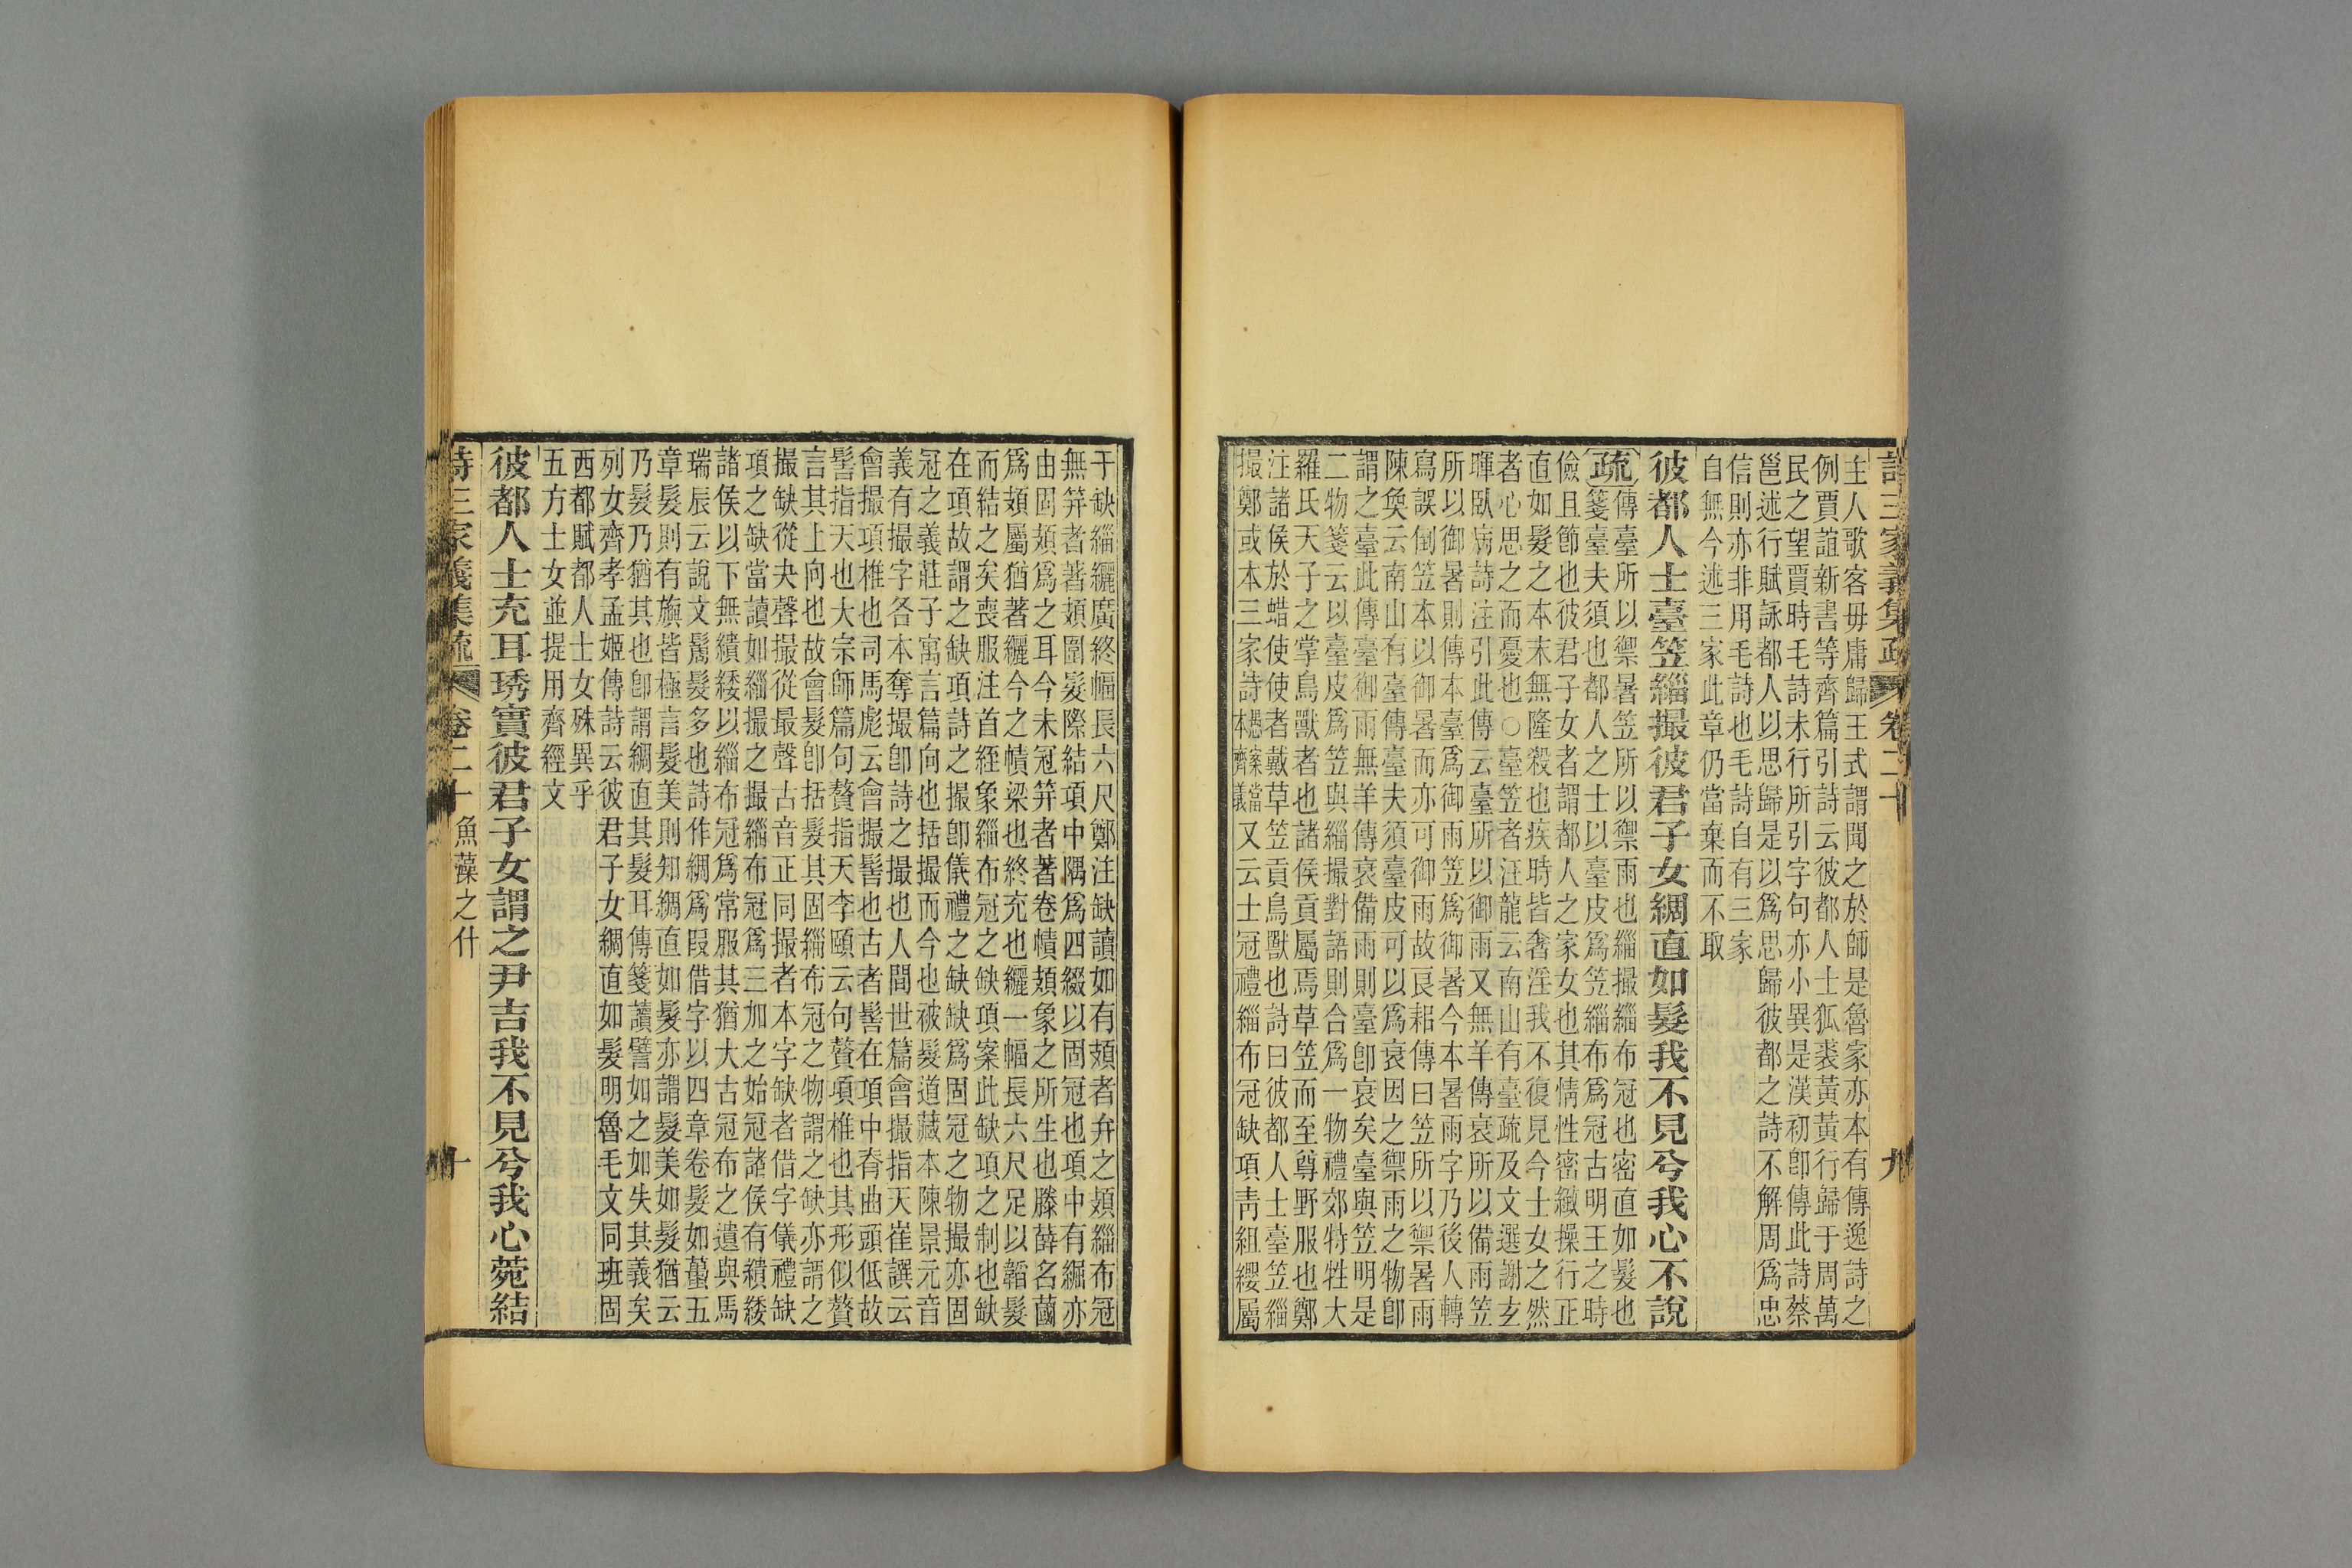 詩三家義集疏 卷二十 九
主人歌客毋庸歸王式謂聞之於師是魯家亦本有傳逸詩之
例賈誼新書等齊篇引詩云彼都人士狐裘黃黃行歸于周萬
民之望賈時毛詩未行所引字句亦小異是漢初卽傳此詩蔡
邕述行賦詠都人以思歸是以爲思歸彼都之詩不解周爲忠
信則亦非用毛詩也毛詩自有三家
自無今述三家此章仍當棄而不取
彼都人士臺笠緇撮彼君子女綢直如髮我不見兮我心不說
疏傳臺所以禦暑笠所以禦雨也緇撮緇布冠也密直如髮也
箋臺夫須也都人之士以臺皮爲笠緇布爲冠古明王之時
儉且節也彼君子女者謂都人之家女也其情性密緻操行正
直如髮之本末無隆殺也疾時皆奢淫我不復見今士女之然
者心思之而憂也○臺笠者汪龍云南山有臺疏及文選謝玄
暉臥病詩注引此傳云臺所以御雨又無羊傳衰所以備雨笠
所以御暑則傳本臺爲御雨笠爲御暑今本暑雨字乃後人轉
寫誤倒笠本以御暑而亦可御雨故良耜傳曰笠所以禦暑雨
陳奐云南山有臺傳臺夫須臺皮可以爲衰因之禦雨之物卽
謂之臺此傳臺御雨無羊傳衰備雨則臺卽衰矣臺與笠明是
二物箋云以臺皮爲笠與緇撮對語則合爲一物禮郊特牲大
羅氏天子之掌鳥獸者也諸侯貢屬焉草笠而至尊野服也鄭
注諸侯於蜡使使者戴草笠貢鳥獸也詩曰彼都人士臺笠緇
撮鄭或本三家詩愚案當本齊義又云士冠禮緇布冠缺項靑組纓屬
于缺緇纚廣終幅長六尺鄭注缺讀如有頍者弁之頍緇布冠
無笄者著頍圍髮際結項中隅爲四綴以固冠也項中有𦃃亦
由固頍爲之耳今未冠笄者著卷幘頍象之所生也滕薛名蔮
爲頍屬猶著纚今之幘梁也終充也纚一幅長六尺足以韜髮
而結之矣喪服注首絰象緇布冠之缺項案此缺項之制也缺
在項故謂之缺項詩之撮卽儀禮之缺缺爲固冠之物撮亦固
冠之義莊子寓言篇向也括撮而今也被髮道藏本陳景元音
義有撮字各本奪撮卽詩之撮也人間世篇會撮指天崔譔云
會撮項椎也司馬彪云會撮髻也古者髻在項中脊曲頭低故
髻指天也大宗師篇句贅指天李頤云句贅項椎也其形似贅
言其上向也故會髮卽括髮其固緇布冠之物謂之缺亦謂之
撮缺從夬聲撮從最聲古音正同撮者本字缺者借字儀禮缺
項之缺當讀如緇撮之撮緇布冠爲三加之始冠諸侯有繢緌
諸侯以下無繢緌以緇布冠爲常服其猶大古冠布之遺與馬
瑞辰云說文鬜髮多也詩作綢爲叚借字以四章卷髮如蠆五
章髮則有旟皆極言髮美則知綢直如髮亦謂髮美如髮猶云
乃髮乃猶其也卽謂綢直其髮耳傳箋讀譬如之如失其義矣
列女齊孝孟姬傳詩云彼君子女綢直如髮明魯毛文同班固
西都賦都人士女殊異乎
五方士女並提用齊經文
彼都人士充耳琇實彼君子女謂之尹吉我不見兮我心菀結
詩三家義集疏 卷二十 魚藻之什 十